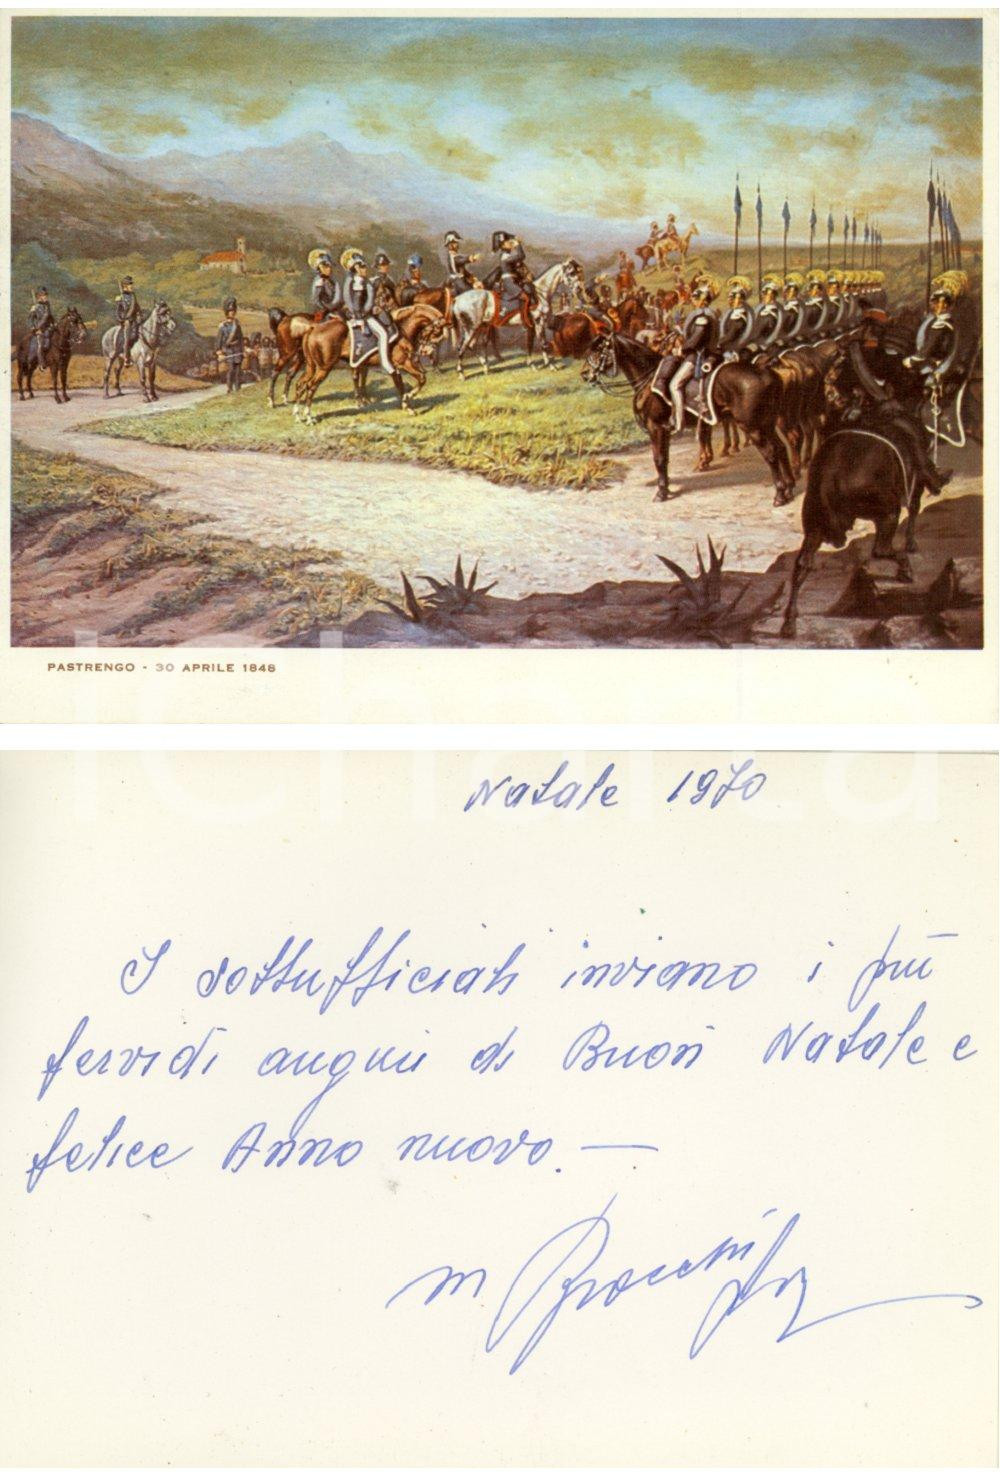 PASTRENGO - 30 APRILE 1848
Natale 1970
I sottufficiali inviano i più
fervidi auguri di Buon Natale e
felice Anno nuovo. —